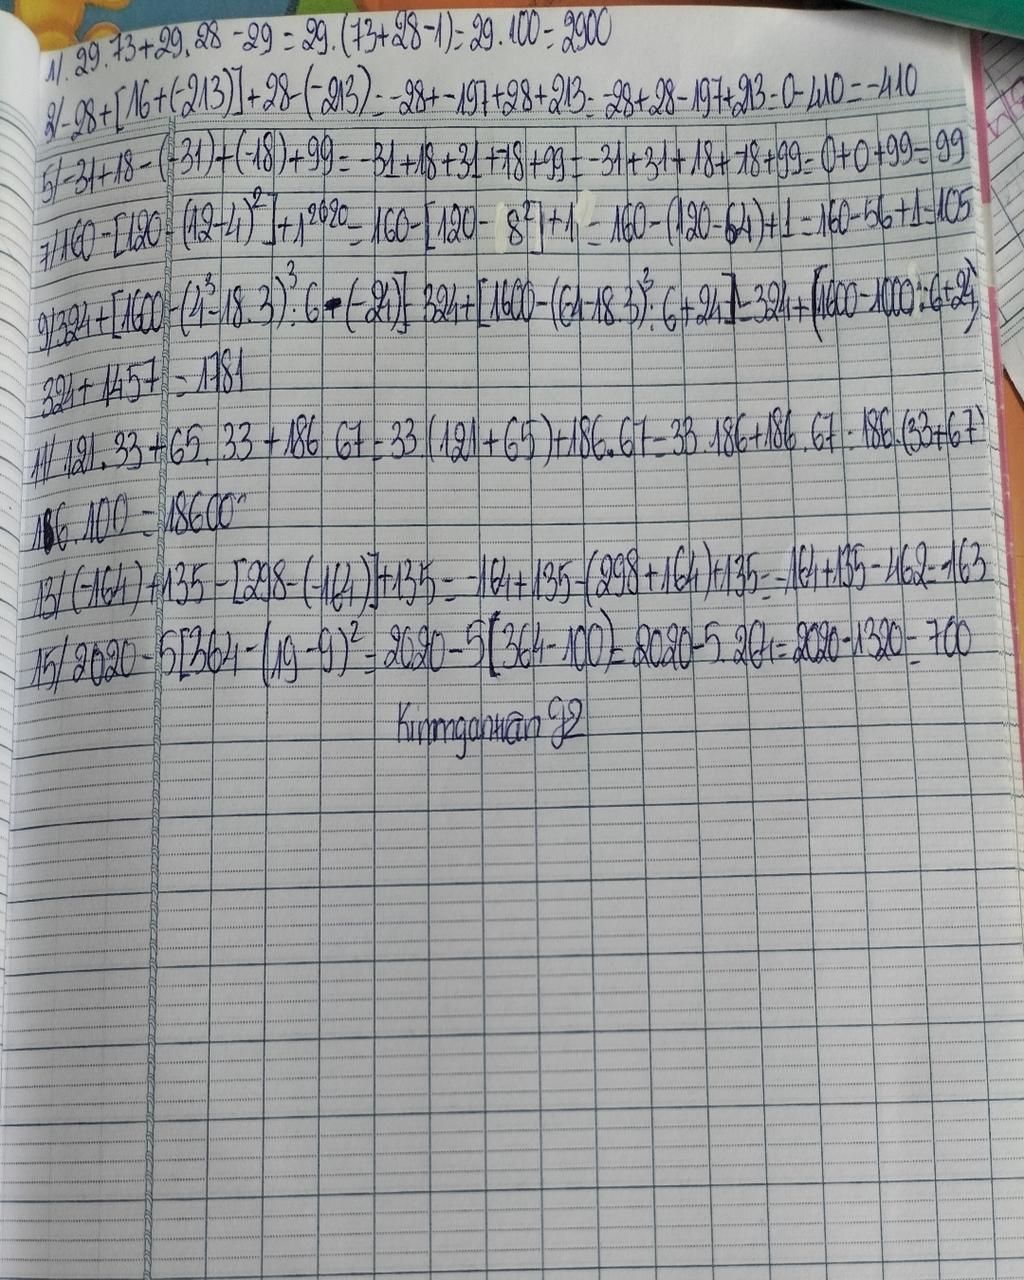 1/. 29.73+29.28-29=29.(73+28-1)=29.100=2900
2/-28+[16+(-213)]+28-(-213)=-28+-197+28+213=-28+28-197+213=0-410=-410
5/-31+18-(-31)+(-18)+99=-31+18+31+-18+99=-31+31+18+-18+99=0+0+99=99
7/160-[120-(12-4)²]+1²⁰²⁰=160-[120-8²]+1=160-(120-64)+1=160-56+1=105
9/324+[1600-(4³-18.3)³:6-(-24)]=324+[1600-(64-18.3)³:6+24]=324+(1600-1000:6+24)
324+1457=1781
11/121.33+65.33+186.67=33.(121+65)+186.67=33.186+186.67=186.(33+67)
186.100=18600
13/(-164)+135-[298-(-164)]+135=-164+135-(298+164)+135=-164+135-462=-163
15/2020-5[364-(19-9)²=2020-5[364-100)=2020-5.264=2020-1320=700